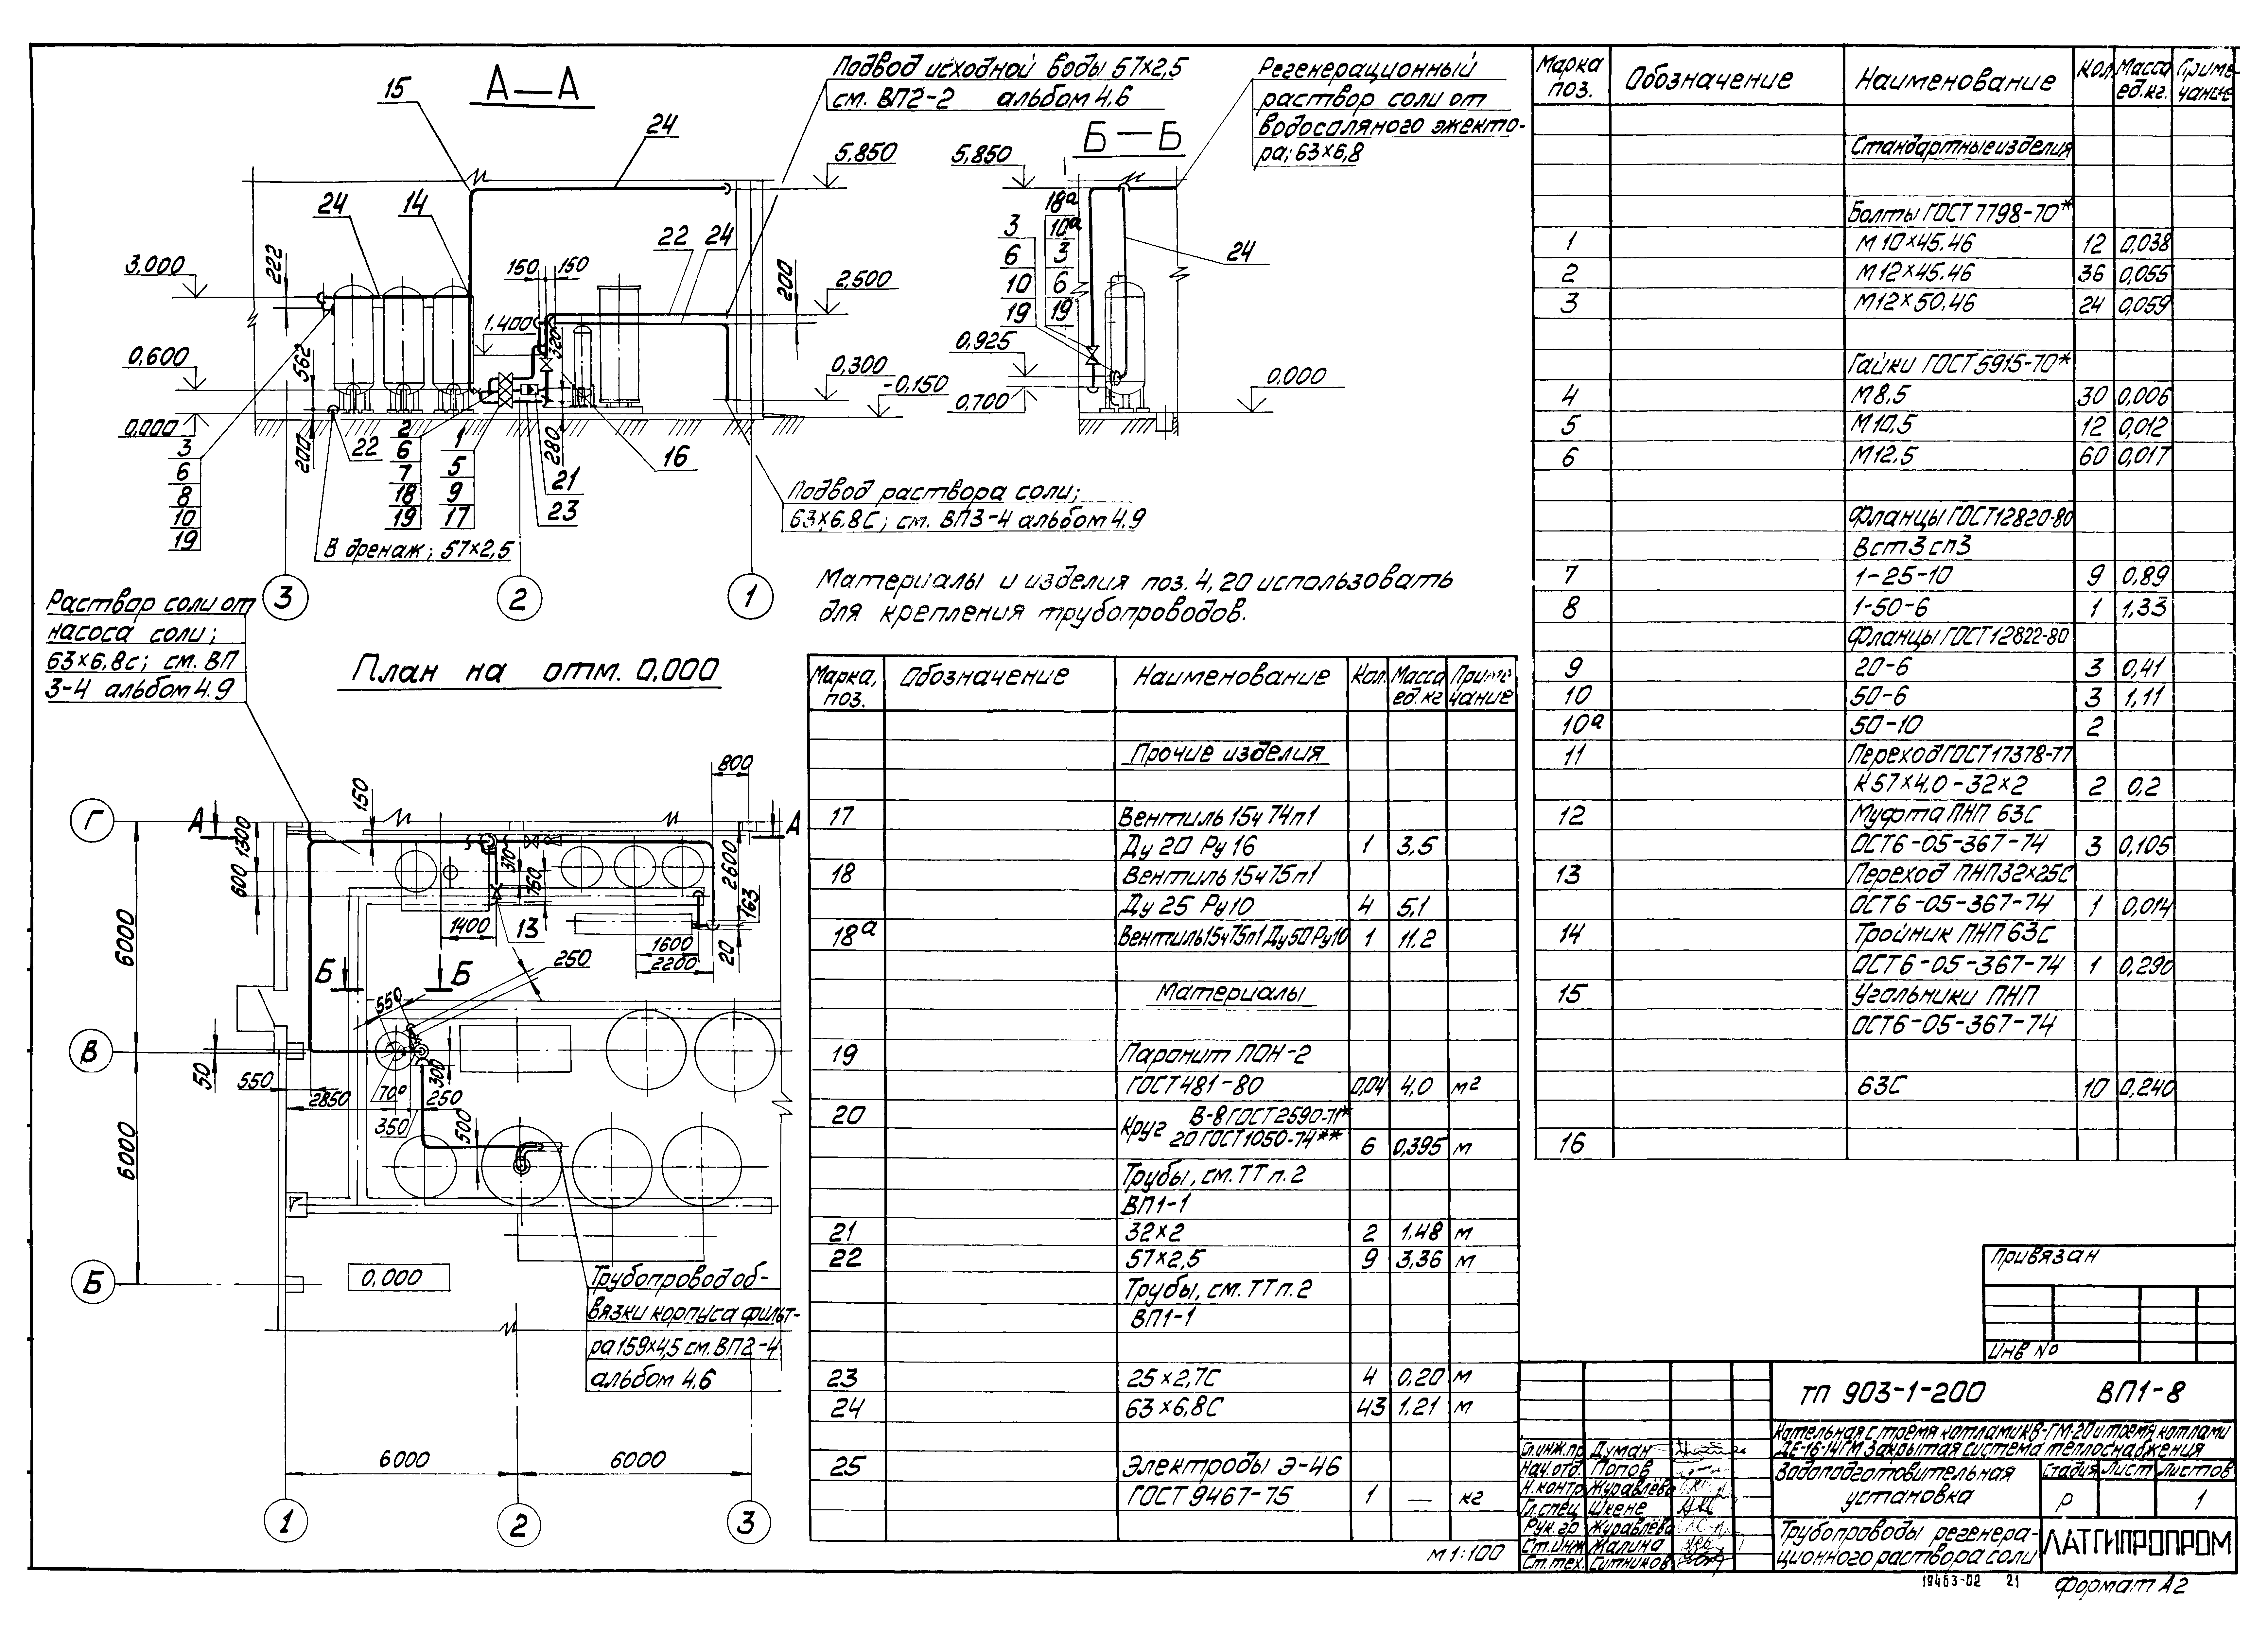 А—А
15
24
24
14
22 24
222
3,000
0,600
562
0,000
200
3
6
8
10
19
22
2
6
7
18
19
1
5
9
17
21
23
16
150 150
1,400
320
280
200
5,850
2,500
0,300
-0,150
Подвод исходной воды 57×2,5
см. ВП2-2 альбом 4,6
Подвод раствора соли;
63×6,8С; см. ВП3-4 альбом 4.9
В дренаж; 57×2,5
3
2
1
Б—Б
Регенерационный
раствор соли от
водосаляного эжекто-
ра; 63×6,8
5,850
3
6
10
19
18ª
10ª
3
6
19
24
0,925
0,700
0,000
Материалы и изделия поз. 4, 20 использовать
для крепления трубопроводов.
Раствор соли от
насоса соли;
63×6,8с; см. ВП
3-4 альбом 4.9
План на отм. 0,000
Г
В
Б
А А
Б Б
150
1300
600
6000
6000
50
550
2850
350
70°
300
250
500
550
250
1400
13
310
750
1600
2200
20
163
2600
800
0,000
Трубопровод об-
вязки корпуса фильт-
ра 159×4,5 см. ВП2-4
альбом 4.6
6000 6000
1
2
3
Марка, поз. Обозначение Наименование Кол. Масса ед. кг Приме-чание
Прочие изделия
17 Вентиль 15ч 74п1
Ду 20 Ру 16 1 3,5
18 Вентиль 15ч 75п1
Ду 25 Ру10 4 5,1
18ª Вентиль 15ч75п1 Ду50 Ру10 1 11.2
Материалы
19 Паронит ПОН-2
ГОСТ 481-80 0,04 4,0 м²
20 Круг В-8 ГОСТ 2590-71*
20 ГОСТ 1050-74** 6 0,395 м
Трубы, см. ТТ п. 2
ВП1-1
21 32×2 2 1.48 м
22 57×2,5 9 3,36 м
Трубы, см. ТТ п. 2
ВП1-1
23 25×2,7С 4 0,20 м
24 63×6,8С 43 1.21 м
25 Электроды Э-46
ГОСТ 9467-75 1 — кг
М 1:100
Марка поз. Обозначение Наименование Кол Масса ед. кг. Приме-чание
Стандартные изделия
Болты ГОСТ 7798-70*
1 М10×45.46 12 0,038
2 М12×45.46 36 0,055
3 М12×50.46 24 0,059
Гайки ГОСТ 5915-70*
4 М8.5 30 0,006
5 М10.5 12 0,012
6 М12.5 60 0,017
Фланцы ГОСТ 12820-80
Вст3сп3
7 1-25-10 9 0,89
8 1-50-6 1 1,33
Фланцы ГОСТ 12822-80
9 20-6 3 0,41
10 50-6 3 1,11
10ª 50-10 2
11 Переход ГОСТ 17378-77
К57×4,0-32×2 2 0,2
12 Муфта ПНП 63С
ОСТ6-05-367-74 3 0,105
13 Переход ПНП32×25С
ОСТ6-05-367-74 1 0,014
14 Тройник ПНП 63с
ОСТ6-05-367-74 1 0,290
15 Угольники ПНП
ОСТ6-05-367-74
63С 10 0,240
16
Привязан
Инв №
тп 903-1-200 ВП1-8
Котельная с тремя котлами КВ-ГМ-20 и тремя котлами
ДЕ-16-14ГМ Закрытая система теплоснабжения
Гл.инж.пр Думан
Нач.отд. Попов
Н.контр Журавлёва
Гл.спец Шкене
Рук.гр Журавлёва
Ст.инж Жалина
Ст.тех. Ситников
Водоподготовительная
установка
Стадия Лист Листов
Р 1
Трубопроводы регенера-
ционного раствора соли
ЛАТГИПРОПРОМ
19463-02 21
Формат А2